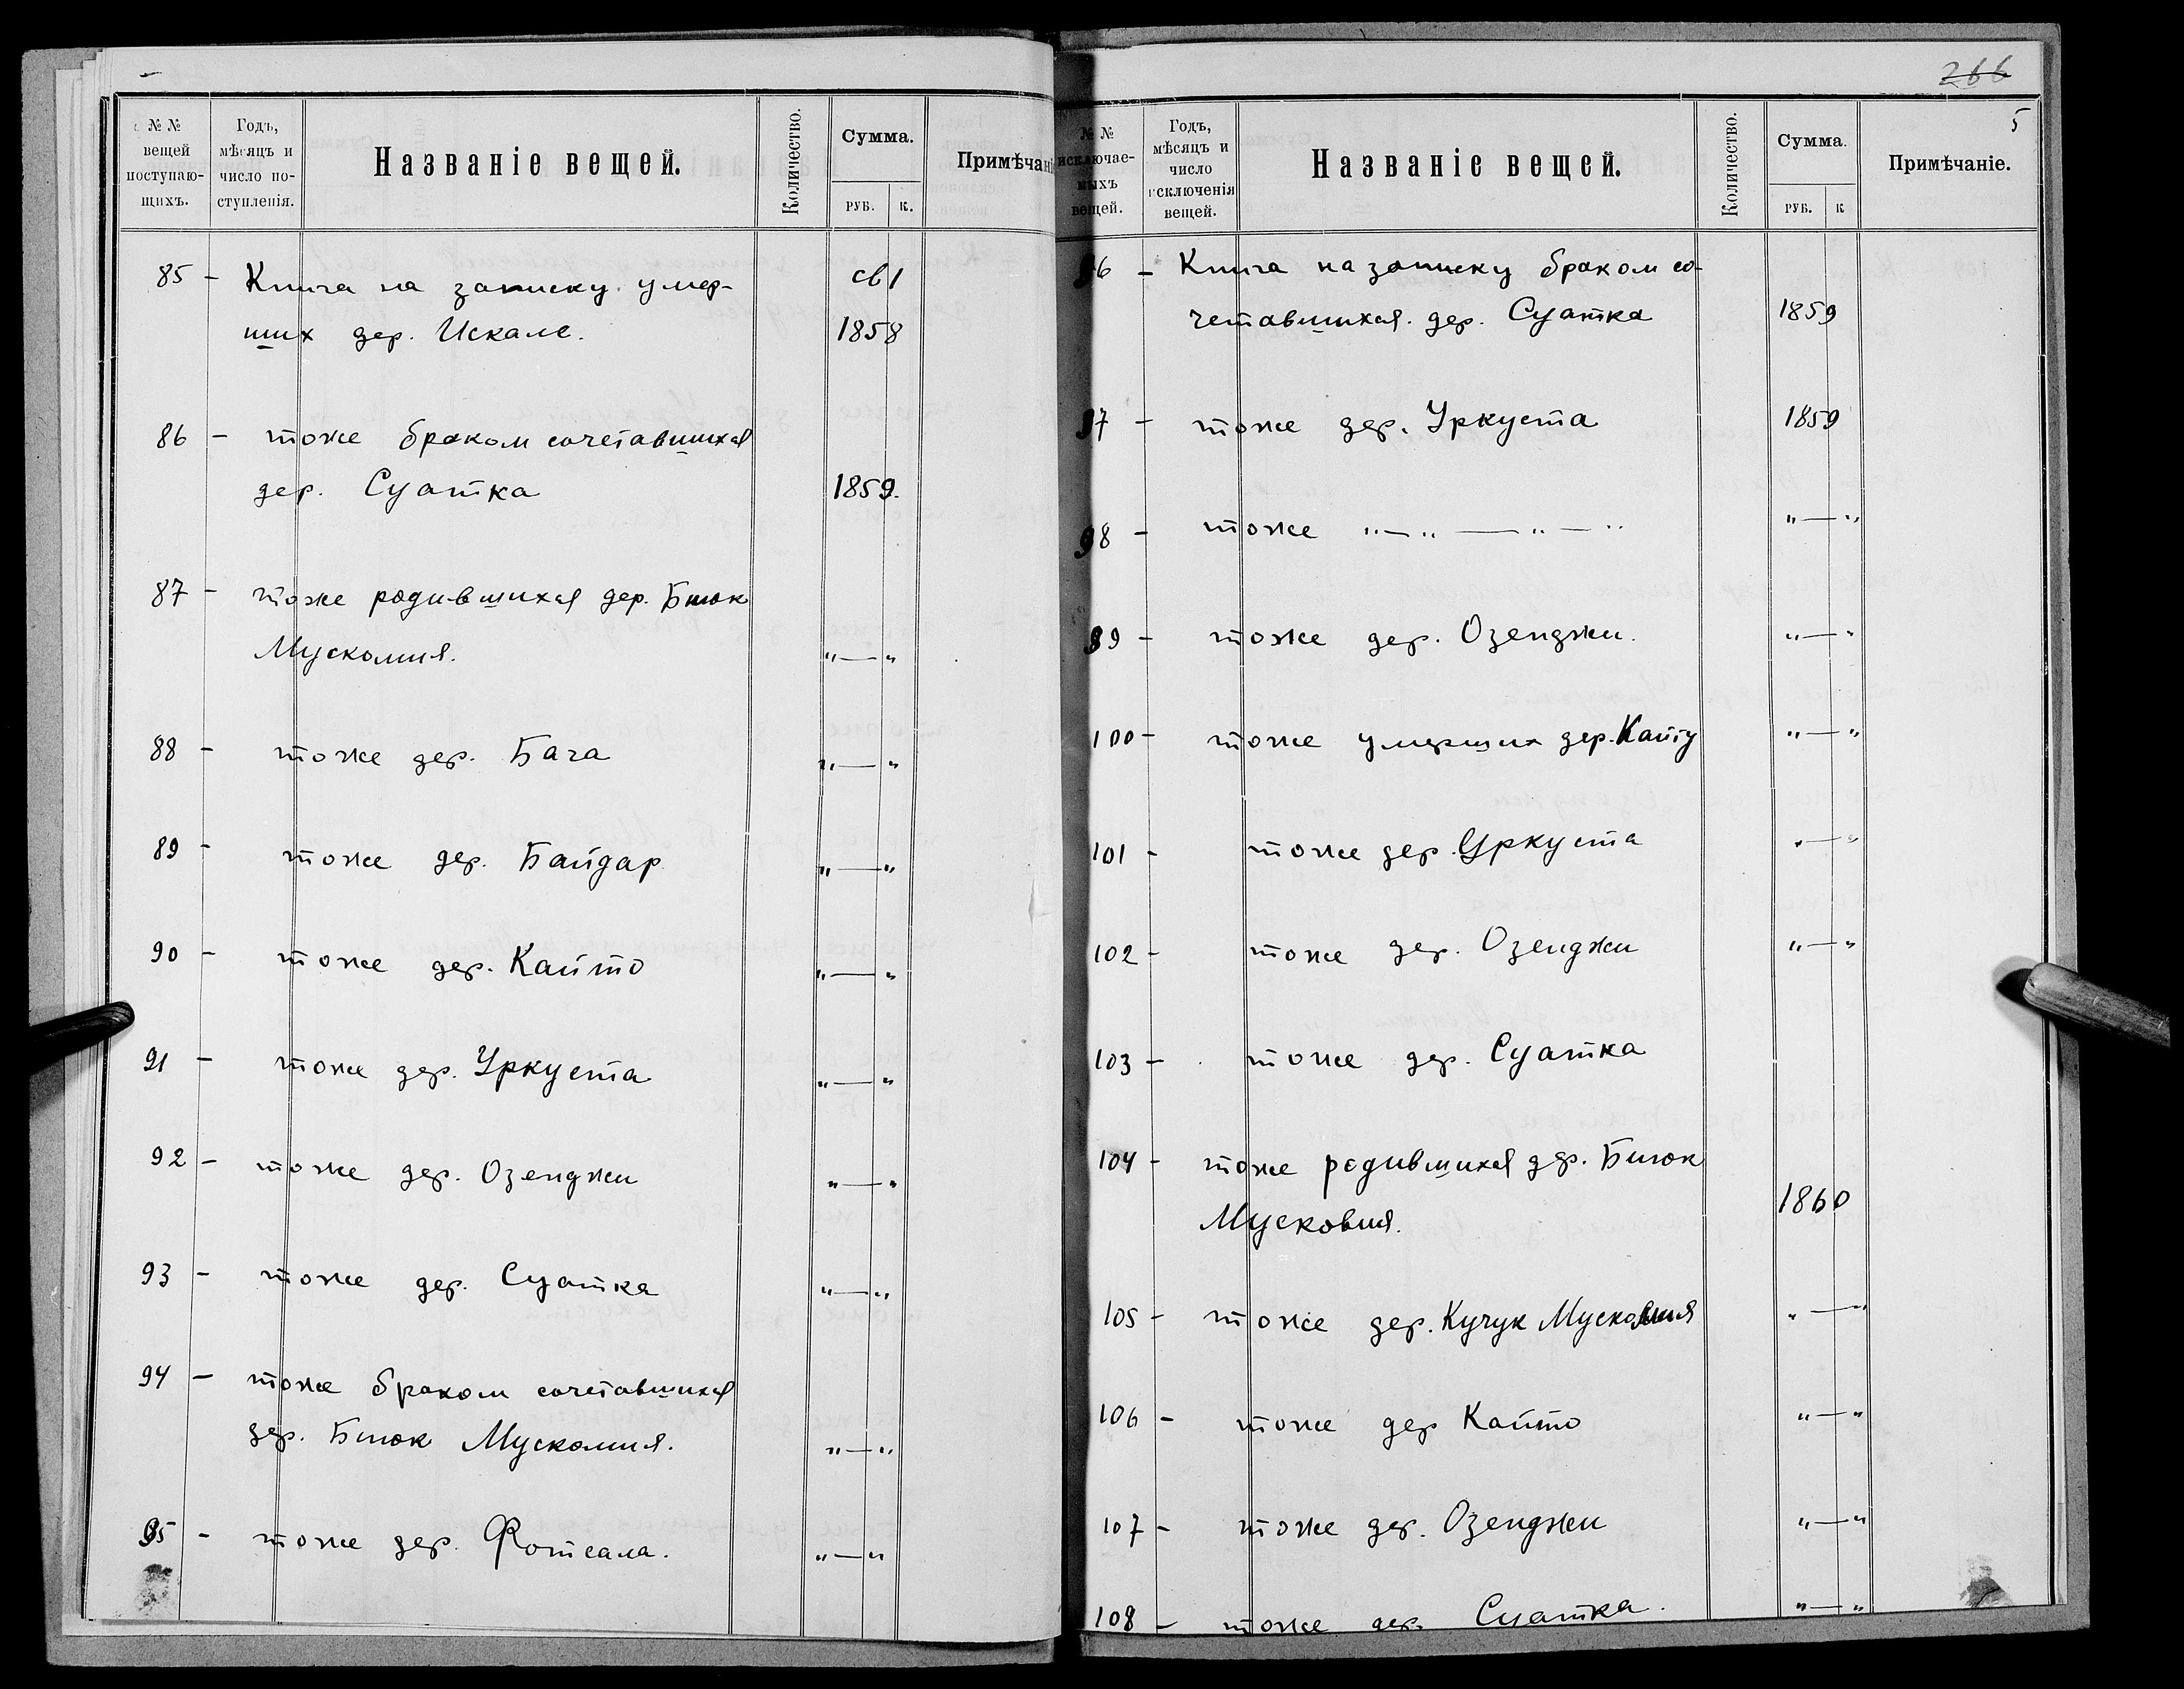 № №
вещей
поступаю-
щихъ.
Годъ,
мѣсяцъ и
число по-
ступленія.
Названіе вещей.
Количество.
Сумма.
РУБ. К.
Примѣчані
85 - Книга на записку умер- св 1
ших дер. Искале. 1858
86 - тоже браком сочетавшихся
дер. Суатка 1859.
87 - тоже родившихся дер. Биюк
Мускомия. "—"
88 - тоже дер. Бага "—"
89 - тоже дер. Байдар "—"
90 - тоже дер. Кайто "—"
91 - тоже дер. Уркуста "—"
92 - тоже дер. Озенджи "—"
93 - тоже дер. Суатка "—"
94 - тоже браком сочетавшихся
дер. Биюк Мускомия. "—"
95 - тоже дер. Фотсала. "—"
266
5
№ №
исключае-
мыхъ
вещей.
Годъ,
мѣсяцъ и
число
исключенія
вещей.
Названіе вещей.
Количество.
Сумма.
РУБ. К
Примѣчаніе.
96 - Книга на записку браком со-
четавшихся. дер. Суатка 1859
97 - тоже дер. Уркуста 1859
98 - тоже "—"—"—" "—"
99 - тоже дер. Озенджи. "—"
100 - тоже умерших дер. Кайту "—"
101 - тоже дер. Уркуста "—"
102 - тоже дер. Озенджи "—"
103 - тоже дер. Суатка
104 - тоже родившихся дер. Биюк
Мусковия. 1860
105 - тоже дер. Кучук Мускомия "—"
106 - тоже дер Кайто "—"
107 - тоже дер. Озенджи "—"
108 - тоже дер. Суатка. "—"